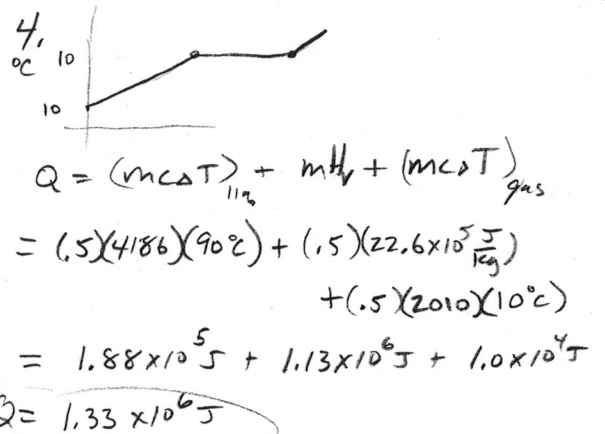 4.
°C 10
10
Q = (mcΔT)liq + mHv + (mcΔT)gas
= (.5)(4186)(90°C) + (.5)(22.6x10⁵ J/kg)
+(.5)(2010)(10°C)
= 1.88x10⁵J + 1.13x10⁶J + 1.0x10⁴J
Q= 1.33 x10⁶J